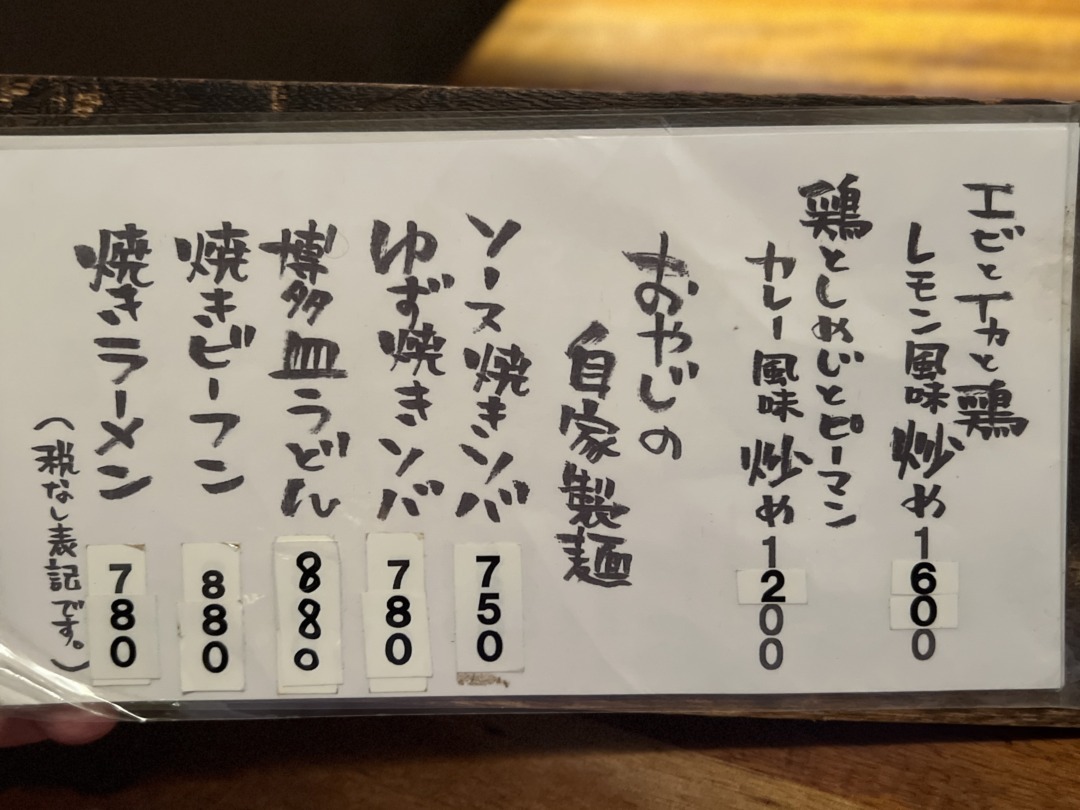 エビとイカと鶏
レモン風味炒め1600
鶏としめじとピーマン
カレー風味炒め1200
おやじの
自家製麺
ソース焼きソバ750
ゆず焼きソバ780
博多皿うどん880
焼きビーフン880
焼きラーメン780
(税なし表記です。)